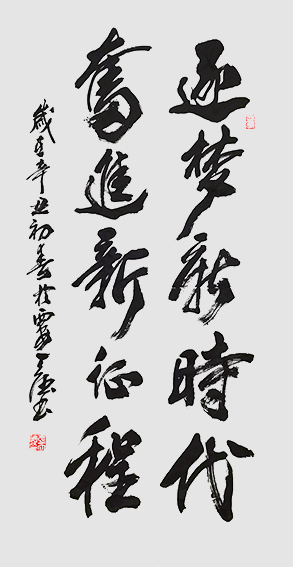 逐梦新時代
奮進新征程
歲在辛丑初春於